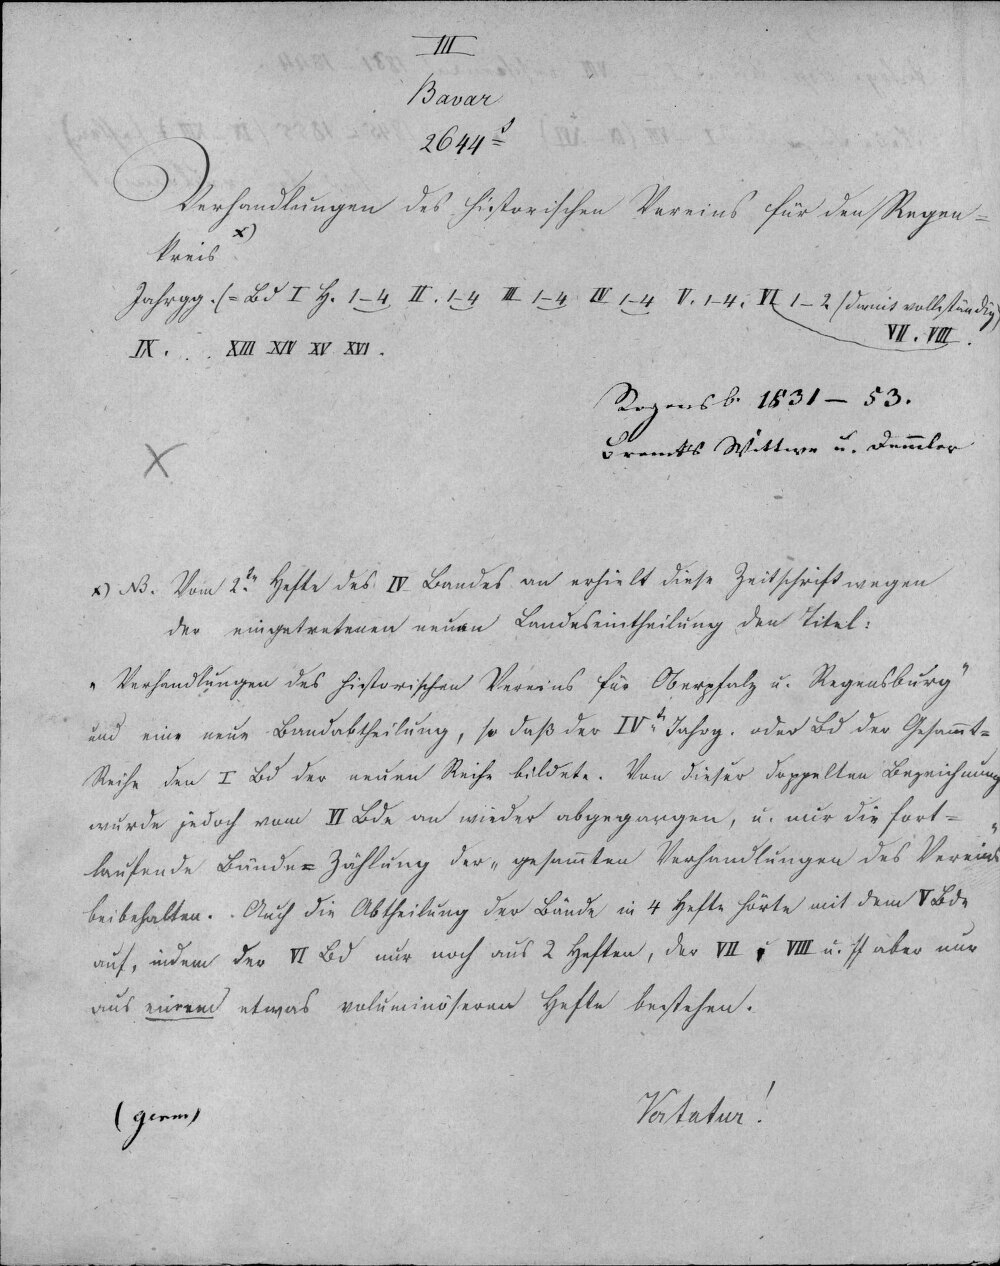 III
Bavar
2644 s
Verhandlungen des historischen Vereins für den Regen=
kreis x)
Jahrgg. (= Bd I H. 1–4 II. 1–4 III 1–4 IV 1–4 V. 1–4. VI 1–2 (damit vollständig)
VII. VIII.
IX. . . XIII XIV XV XVI.
Regensb. 1831 – 53.
Wittwe u. Demmler
x) NB. Vom 2ten Hefte des IV Bandes an erhielt diese Zeitschrift wegen
der eingetretenen neuen Landeseintheilung den Titel:
„Verhandlungen des historischen Vereins für Oberpfalz u. Regensburg“
und eine neue Bandabtheilung, so daß der IVte Jahrg. oder Bd der Gesammt=
Reihe den I Bd der neuen Reihe bildete. Von dieser doppelten Bezeichnung
wurde jedoch vom VI Bde an wieder abgegangen, u. nur die fort=
laufende Bände=Zählung der „gesam̄ten Verhandlungen des Vereins“
beibehalten. Auch die Abtheilung der Bände in 4 Hefte hörte mit dem V Bde
auf, indem der VI Bd nur noch aus 2 Heften, der VII, VIII u. ff aber nur
aus einem etwas voluminöseren Hefte bestehen.
(germ)
Vertatur!